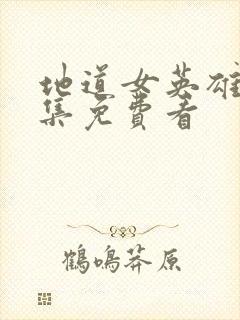 地道女英雄
集免费看
鹤鸣莽原